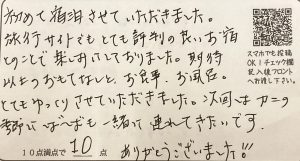 初めて宿泊させていただきました。
旅行サイトでもとても評判の良いお宿
とのことで楽しみにしておりました。期待
以上のおもてなしと、お食事、お風呂。
とてもゆっくりさせていただきました。次回はカニの
季節にばぁばも一緒に連れてきたいです。
10点満点で 10 点
ありがとうございました!!!
スマホでも投稿
OK!チェック欄
記入後フロント
へお渡し下さい。